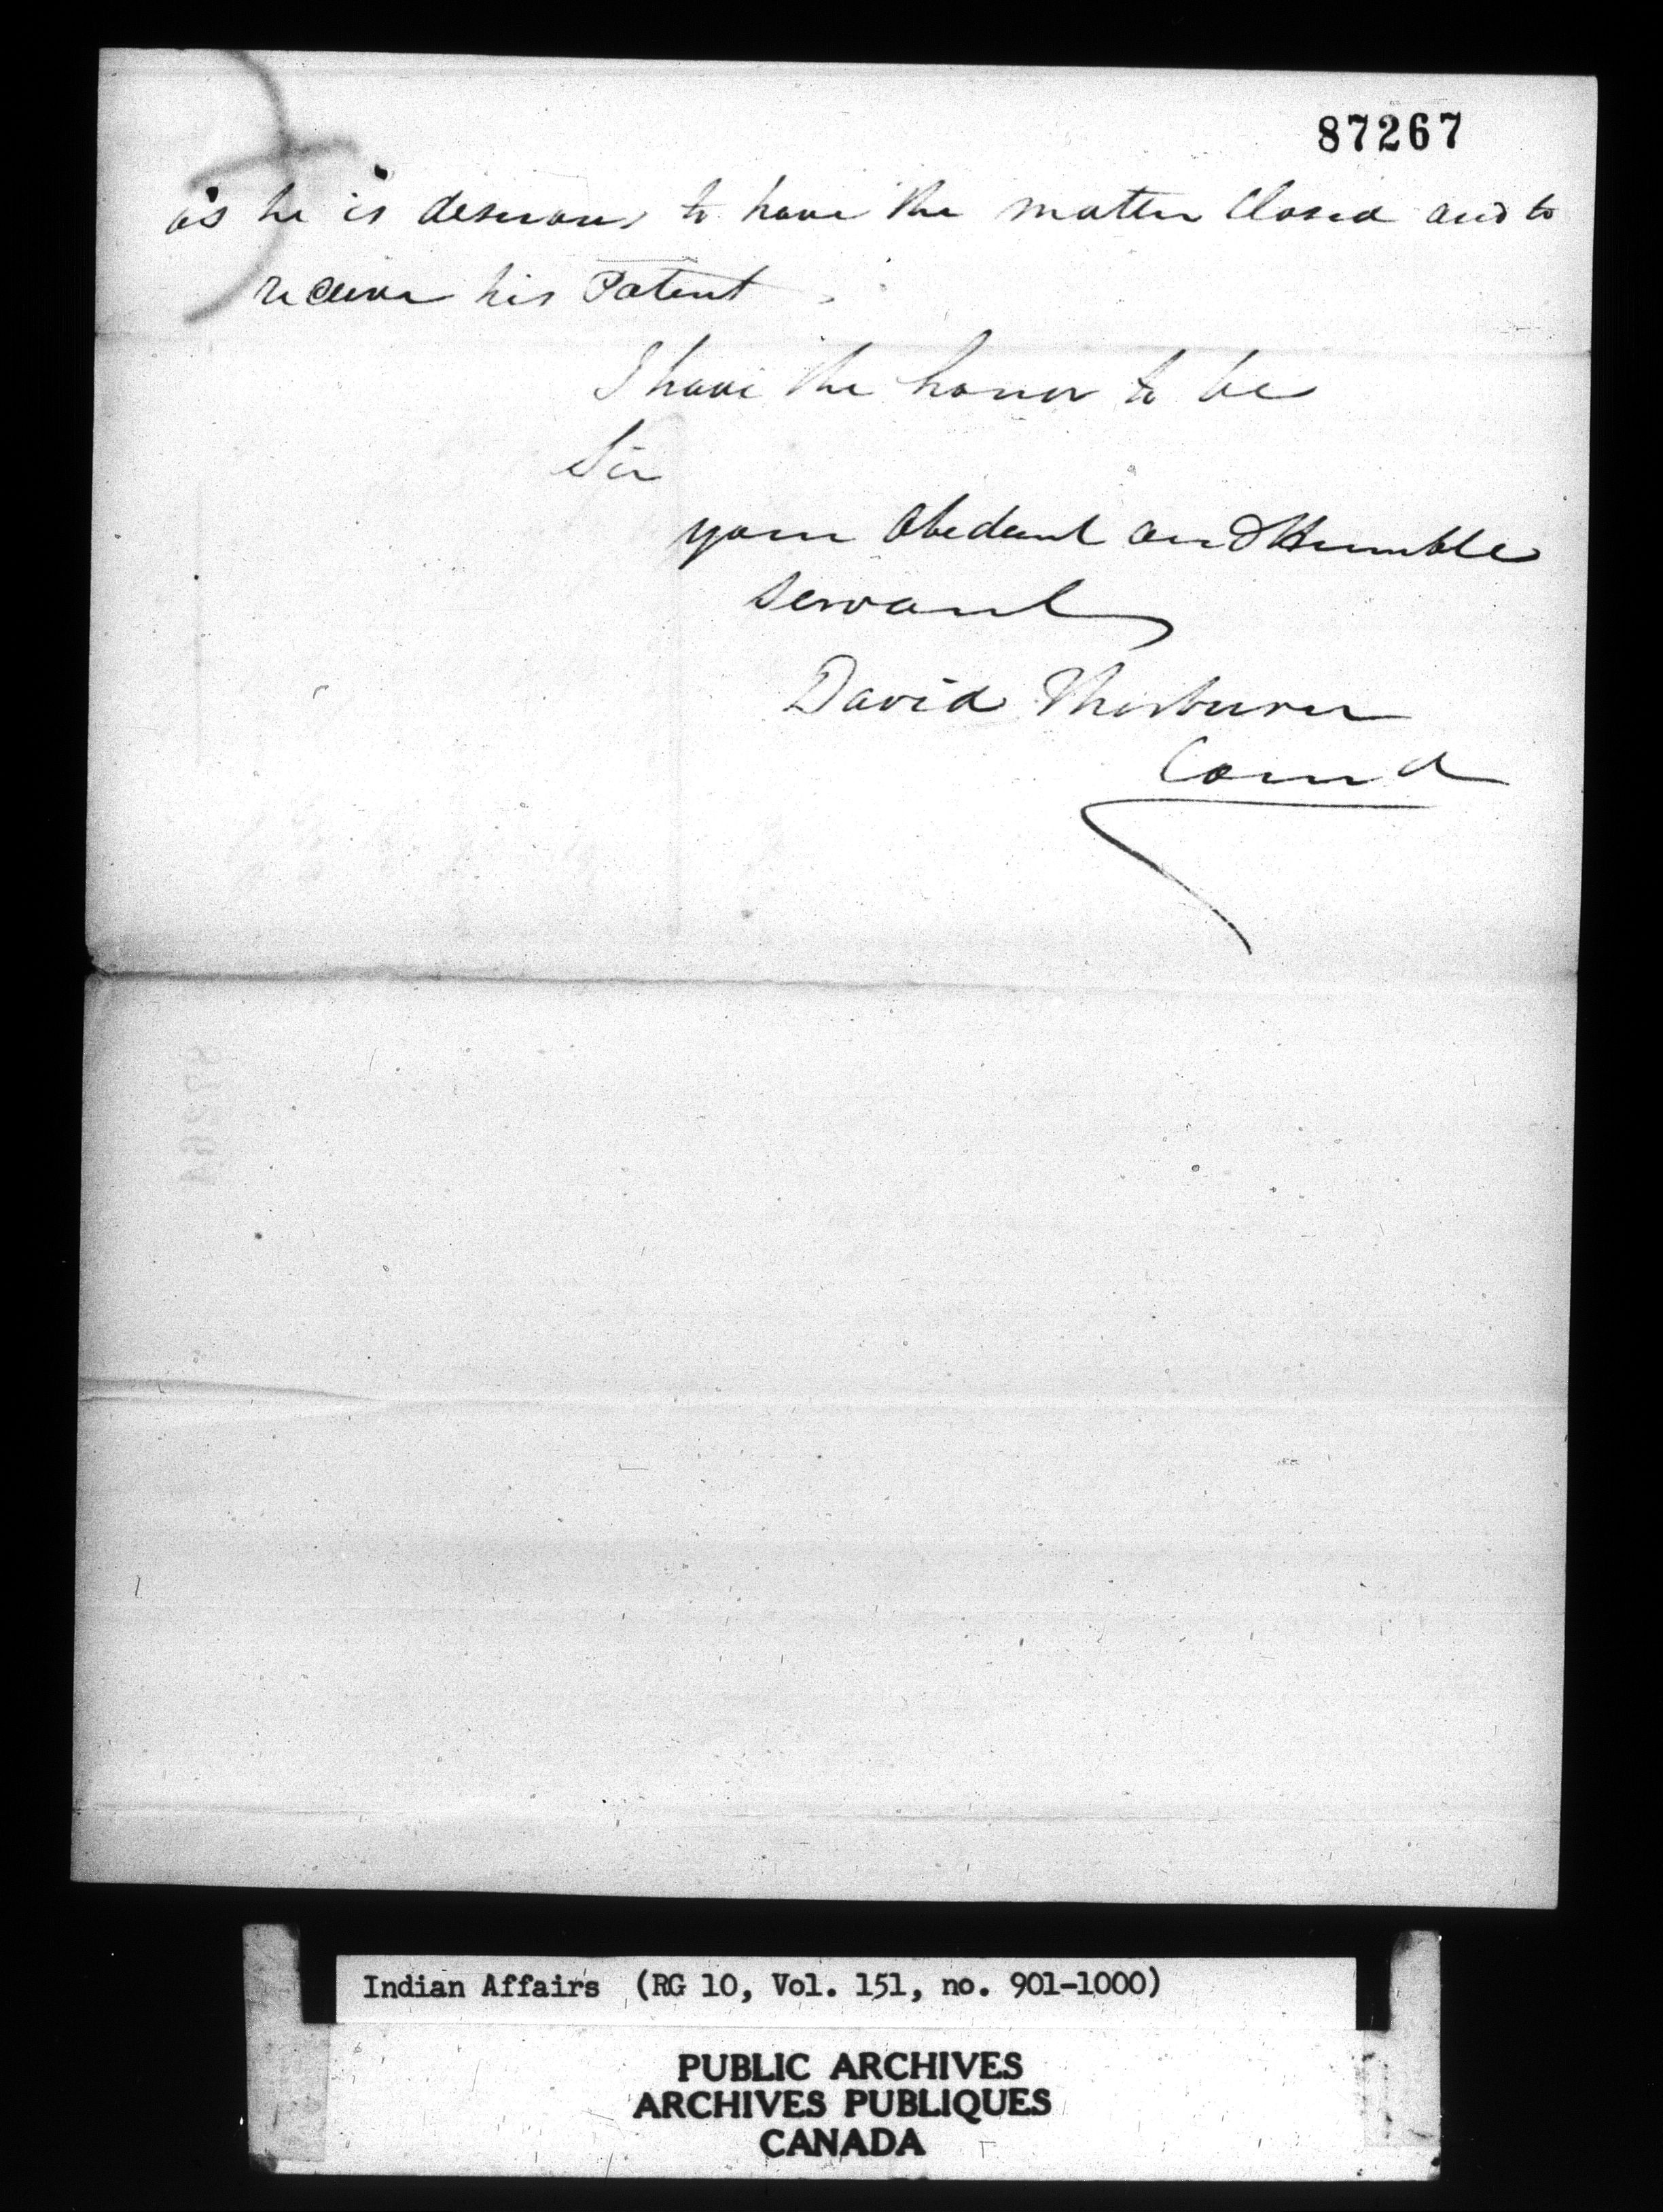 87267
as he is desirous to have the matter Closed and to
receive his Patent
I have the honor to be
Sir
your Obedient and Humble
servant
David Thorburn
Indian Affairs (RG 10, Vol. 151, no. 901-1000)
PUBLIC ARCHIVES
ARCHIVES PUBLIQUES
CANADA